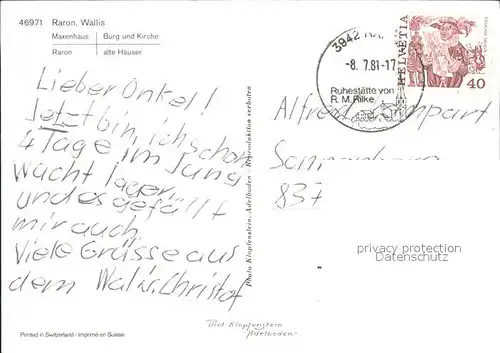 46971 Raron, Wallis
Maxenhaus Burg und Kirche
Raron alte Häuser
Lieber Onkel!
Jetzt bin ich schon
4 Tage im Jung
wacht lager
und es gefällt
mir auch
Viele Grüsse aus
dem Wallis. Christof
Printed in Switzerland - Imprimé en Suisse
Photo Klopfenstein, Adelboden - Reproduktion verboten
3942
-8. 7.81-17
Ruhestätte von
R. M. Rilke
HELVETIA
40
Alfred
837
privacy protection
Datenschutz
Phot Klopfenstein
Adelboden